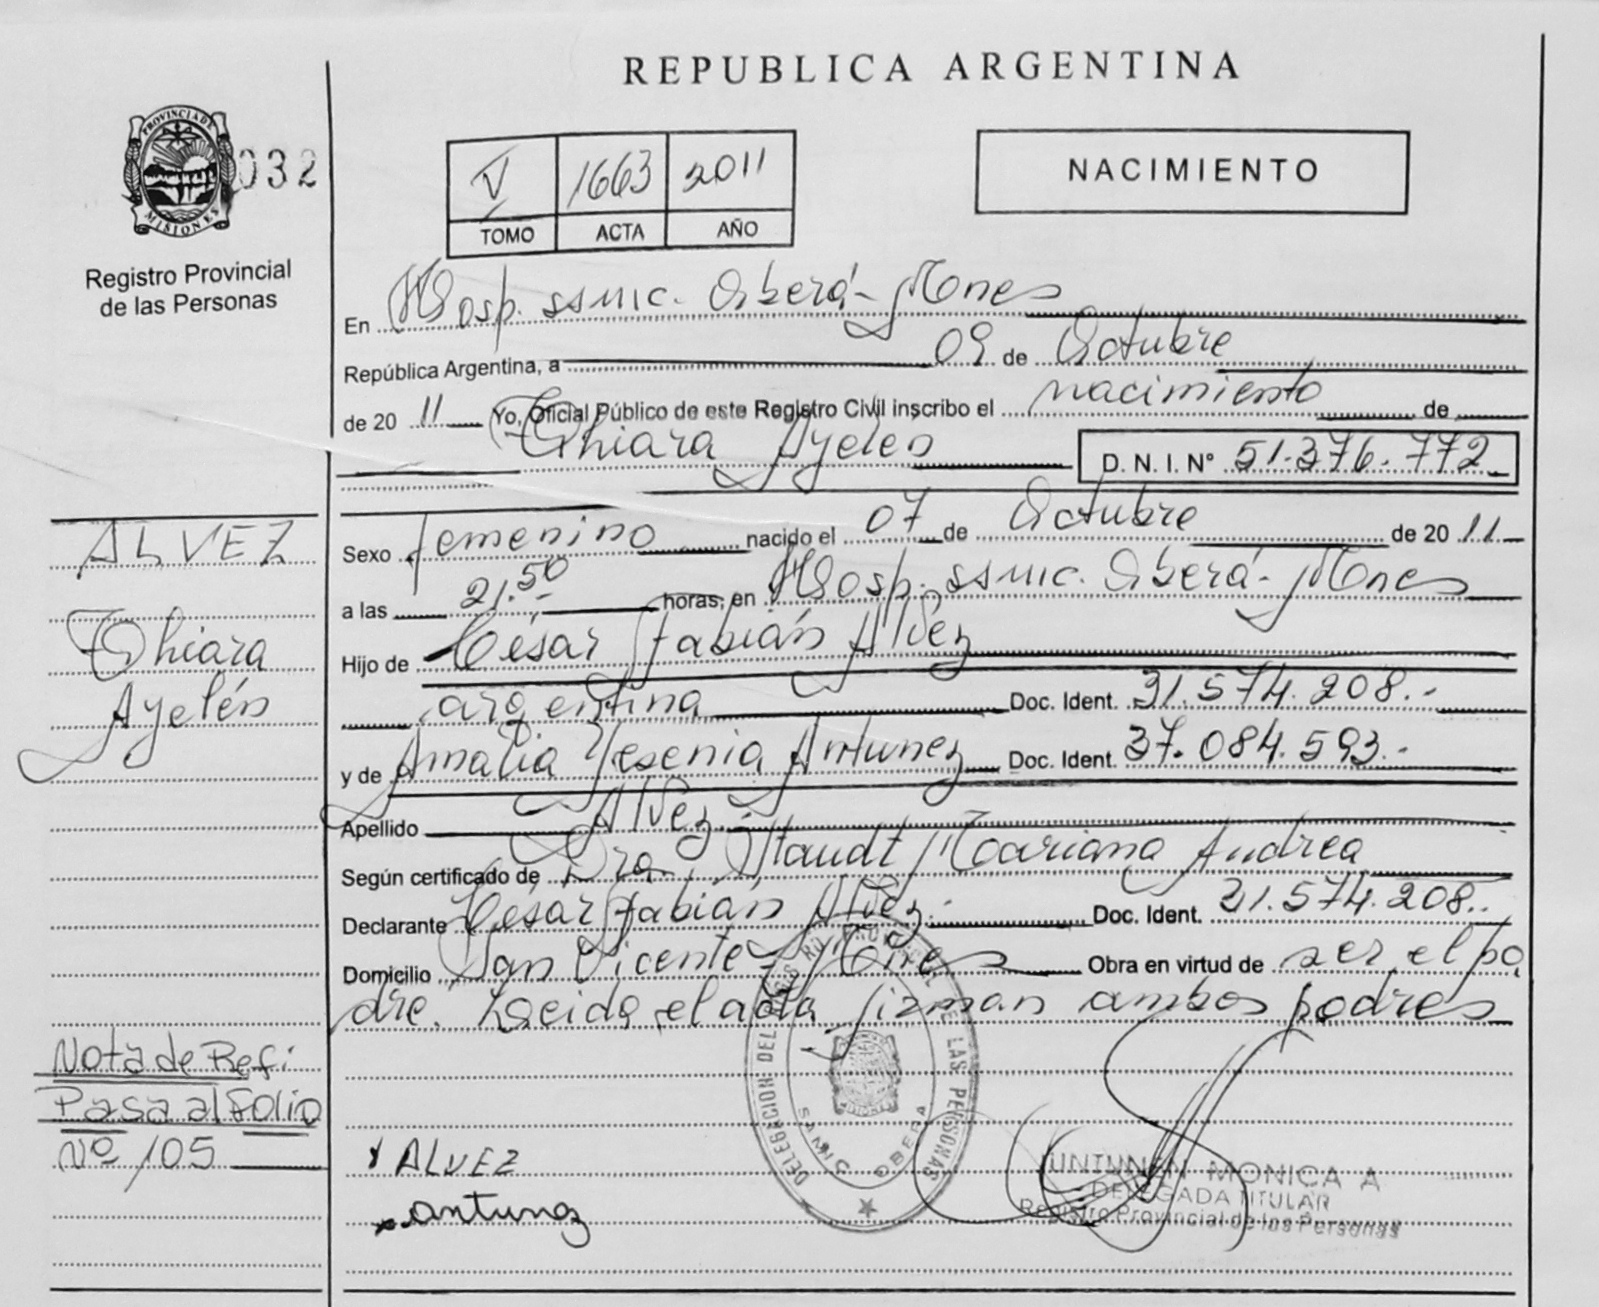 REPUBLICA ARGENTINA
PROVINCIA DE
MISIONES
032
Registro Provincial
de las Personas
V 1663 2011
TOMO ACTA AÑO
NACIMIENTO
En Hosp. ssmic. Oberá - Mones
República Argentina, a 09 de Octubre
de 20 11 Yo, Oficial Público de este Registro Civil inscribo el nacimiento de
Thiara Ayelén D.N.I.Nº 51.376.772
Sexo femenino nacido el 07 de Octubre de 20 11
a las 21.50 horas, en Hosp. ssmic. Oberá - Mones
Hijo de César Fabián Alvez
argentina Doc. Ident. 31.574.208.-
y de Amalia Yesenia Antunez Doc. Ident. 37.084.593.-
Apellido Alvez.
Según certificado de Dra. Staudt Mariana Andrea
Declarante César Fabián Alvez. Doc. Ident. 31.574.208.
Domicilio San Vicente - Mnes Obra en virtud de ser el pa
dre. Leida el acta firman ambos padres
ALVEZ
Thiara
Ayelén
Nota de Ref:
Pasa al folio
Nº 105
x ALVEZ
x antunez
DELEGACION DEL REGISTRO PROVINCIAL DE LAS PERSONAS
SAMIC OBERA
MONICA A
DELEGADA TITULAR
Registro Provincial de las Personas